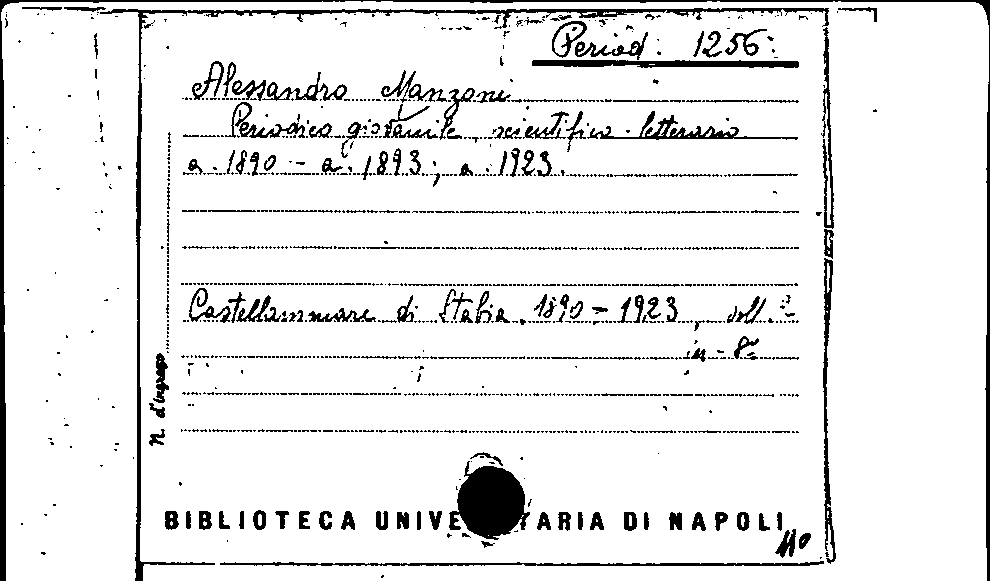 Period. 1256.
Alessandro Manzoni.
Periodico giovanile, scientifico-letterario
a. 1890 - a. 1893; a. 1923.
Castellammare di Stabia. 1890 - 1923, voll.
in-8º
N. d'ingresso
BIBLIOTECA UNIVERSITARIA DI NAPOLI